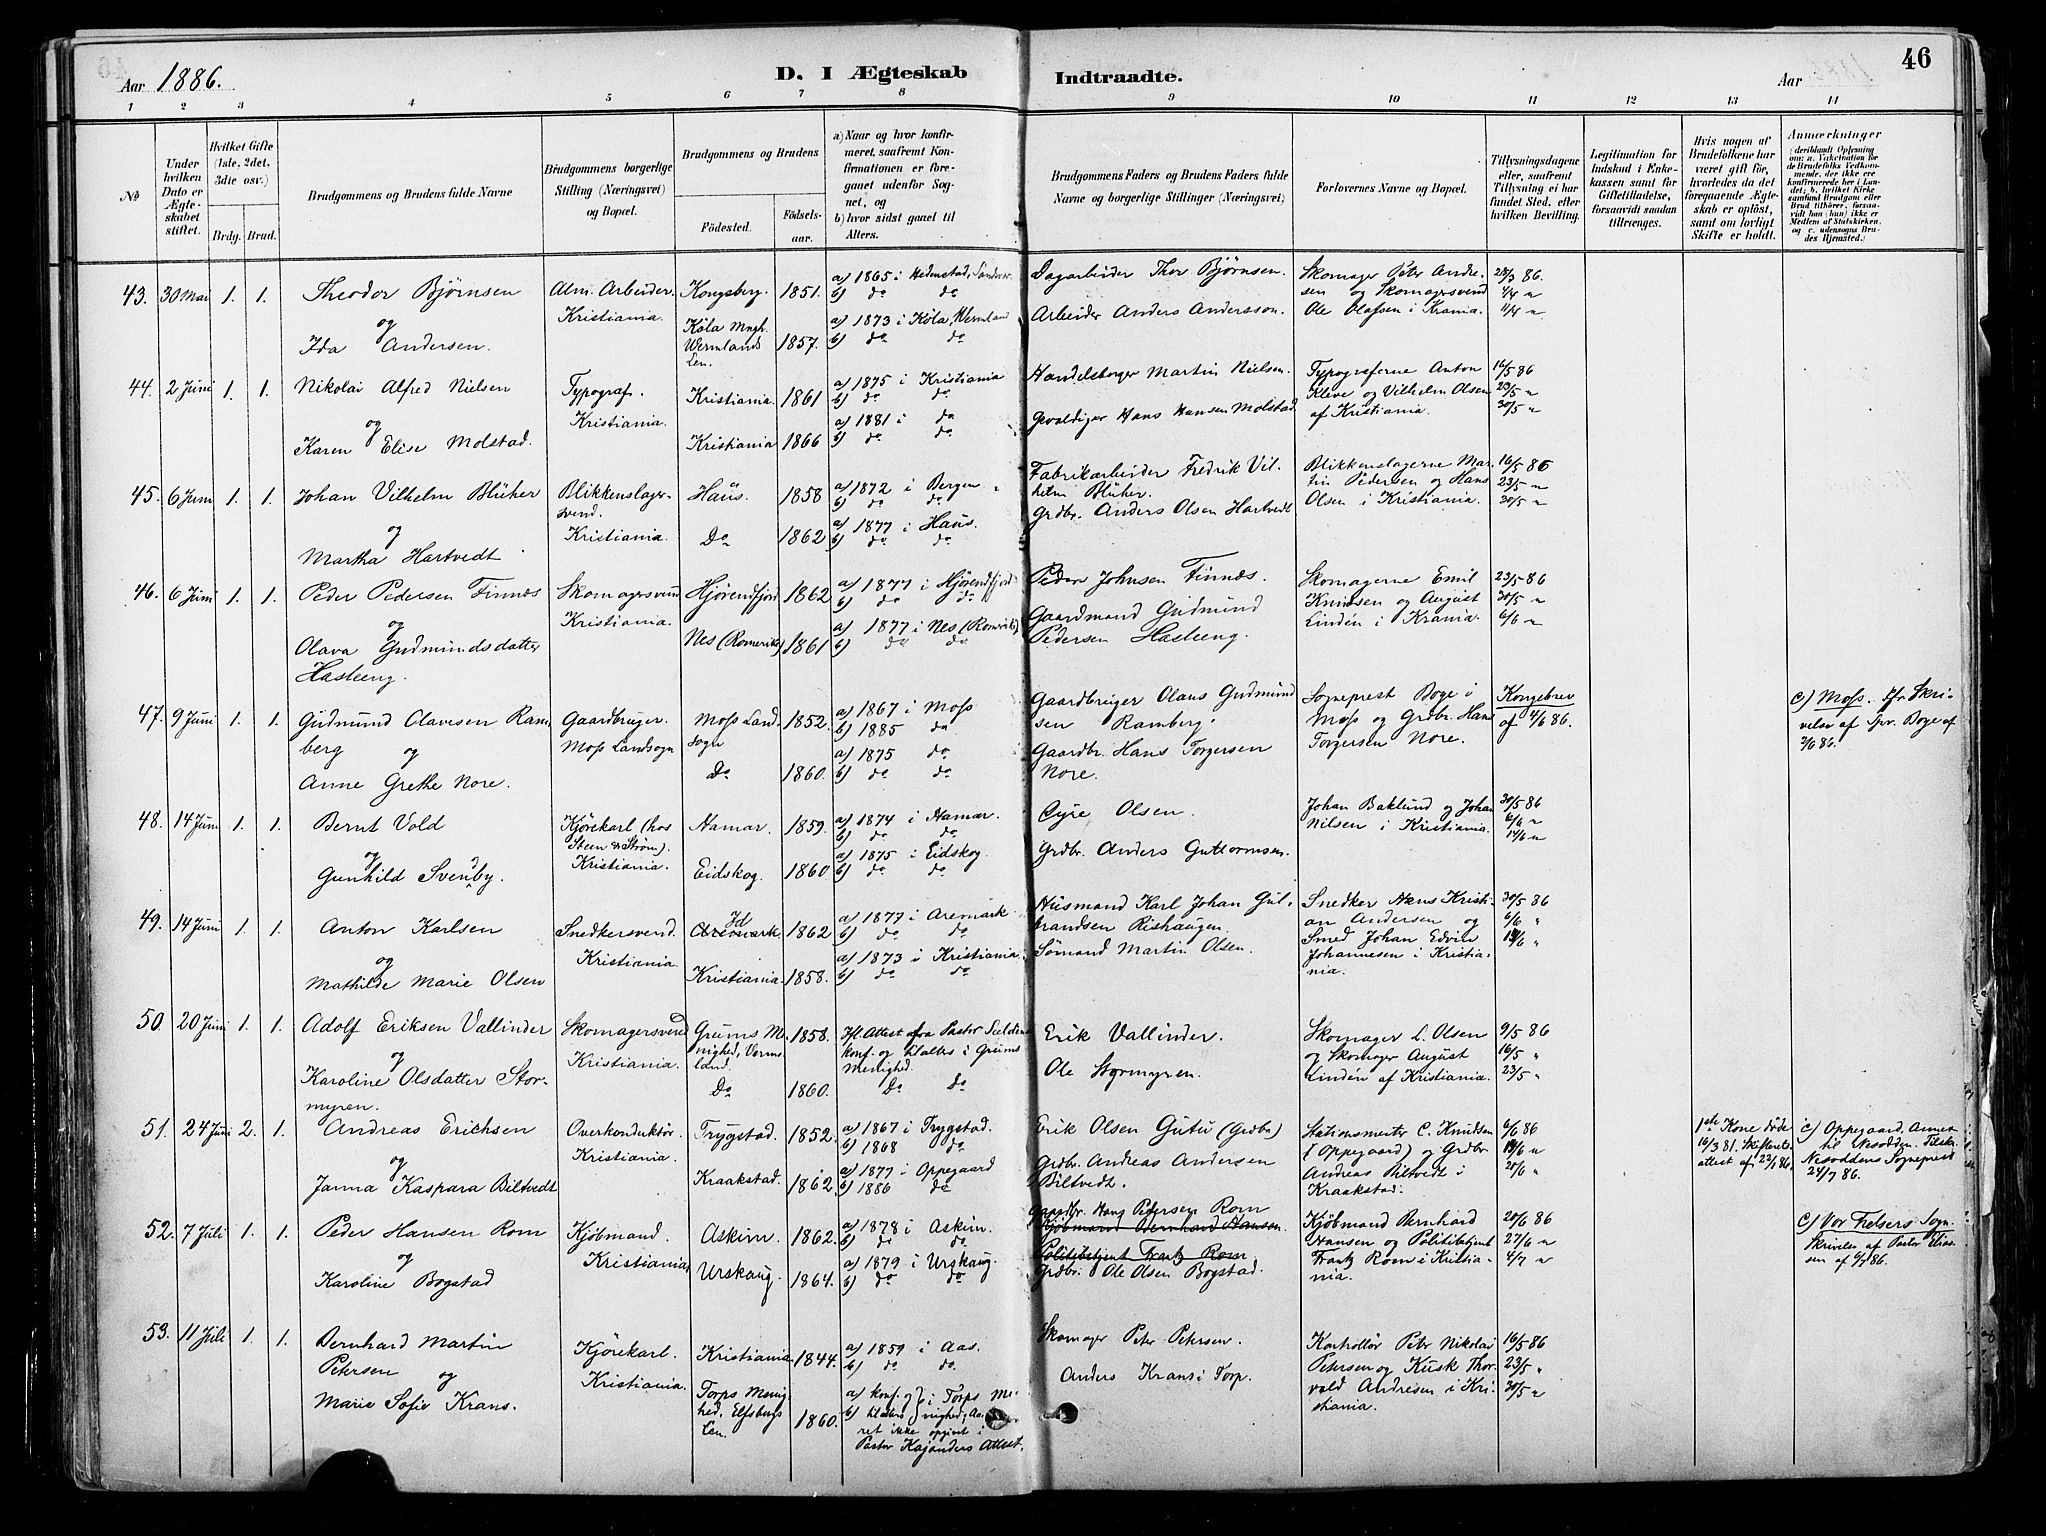 Aar 1886.
D. I Ægteskab Indtraadte.
Aar
46
1 2 3 4 5 6 7 8 9 10 11 12 13 14
№
Under hvilken Dato er Ægteskabet stiftet.
Hvilket Gifte (1ste, 2det, 3die osv.)
Brdg. Brud.
Brudgommens og Brudens fulde Navne
Brudgommens borgerlige Stilling (Næringsvei) og Bopæl.
Brudgommens og Brudens
Fødested.
Fødselsaar.
a) Naar og hvor konfirmeret, saafremt Konfirmationen er foregaaet udenfor Sognet, og
b) hvor sidst gaaet til Alters.
Brudgommens Faders og Brudens Faders fulde Navne og borgerlige Stillinger (Næringsvei)
Forlovernes Navne og Bopæl.
Tillysningsdagene eller, saafremt Tillysning ei har fundet Sted, efter hvilken Bevilling.
Legitimation for Indskud i Enkekassen samt for Giftetilladelse, forsaavidt saadan tiltrænges.
Hvis nogen af Brudefolkene har været gift før, hvorledes da det foregaaende Ægteskab er opløst, samt om lovligt Skifte er holdt.
Anmærkninger (deriblandt Oplysning om: a. Vakcination for de Brudefolks Vedkommende, der ikke ere konfirmerede her i Landet; b. hvilket Kirkesamfund Brudgom eller Brud tilhører, forsaavidt han (hun) ikke er Medlem af Statskirken, og c. udensogns Brudes Hjemsted.)
43. 30 Mai 1. 1. Theodor Bjørnsen
og
Ida Andersen.
Alm. Arbeider.
Kristiania.
Kongsberg. 1851.
Köla Mngh. Wermlands Len. 1857.
a) 1865 i Hedenstad, Sandsv.
b) do do
a) 1873 i Köla, Wermland
b) do do
Dagarbeider Thor Bjørnsen.
Arbeider Anders Andersson.
Skomager Peter Andresen og Skomagersvend Ole Olafsen i Krania.
28/3 86.
4/4 "
11/4 "
44. 2 Juni 1. 1. Nikolai Alfred Nielsen
og
Karen Elise Molstad.
Typograf.
Kristiania.
Kristiania. 1861
Kristiania 1866
a) 1875 i Kristiania
b) do do
a) 1881 i do
b) do do
Handelsborger Martin Nielsen.
Gevaldiger Hans Hansen Molstad.
Typograferne Anton Kleve og Vilhelm Olsen af Kristiania.
16/5 86
23/5 "
30/5 "
45. 6 Juni 1. 1. Johan Vilhelm Blüher
og
Martha Hartvedt
Blikkenslagersvend.
Kristiania.
Haus. 1858
Do 1862
a) 1872 i Bergen.
b) do do
a) 1877 i Haus.
b) do do
Fabrikarbeider Fredrik Vilhelm Blüher.
Grdbr. Anders Olsen Hartvedt
Blikkenslagerne Martin Pedersen og Hans Olsen i Kristiania.
16/5 86
23/5 "
30/5 "
46. 6 Juni 1. 1. Peder Pedersen Finnes
og
Olava Gudmundsdatter
Hasleeng.
Skomagersvend
Kristiania.
Hjørendfjord 1862
Nes (Romerike) 1861
a) 1877 i Hjørendfjord
b) do do
a) 1877 i Nes (Romerike)
b) do do
Peder Johnsen Finnes.
Gaardmand Gudmund Pedersen Hasleeng.
Skomagerne Emil Knudsen og August Lindén i Krania.
23/5 86
30/5 "
6/6 "
47. 9 Juni 1. 1. Gudmund Olavesen Ramberg og
Anne Grethe Nore.
Gaardbruger.
Moss Landsogn
Moss Landsogn 1852.
Do 1860.
a) 1867 i Moss
b) 1885 do
a) 1875 do
b) do do
Gaardbruger Olaus Gudmundsen Ramberg.
Gaardbr. Hans Torgersen Nore.
Sogneprest Boge i Moss og Grdbr. Hans Torgersen Nore.
Kongebrev af 4/6 86.
c) Moss. Jfr Skrivelse af Spr. Boge af 7/6 86.
48. 14 Juni 1. 1. Bernt Vold
og
Gunhild Svendby.
Kjørekarl (hos Steen & Strøm).
Kristiania.
Hamar. 1859.
Eidskog. 1860
a) 1874 i Hamar.
b) do do
a) 1875 i Eidskog.
b) do do
Cyre Olsen.
Grdbr. Anders Guttormsen.
Johan Baklund og Johan Nilsen i Kristiania.
30/5 86
6/6 "
14/6 "
49. 14 Juni 1. 1. Anton Karlsen
og
Mathilde Marie Olsen
Snedkersvend.
Kristiania.
Id
Aremark. 1862
Kristiania 1858.
a) 1877 i Aremark
b) do do
a) 1873 i Kristiania.
b) do do
Husmand Karl Johan Gulbrandsen Rishaugen.
Sømand Martin Olsen.
Snedker Hans Kristian Andersen og Smed Johan Edvin Johannesen i Kristiania.
30/5 86
6/6 "
14/6 "
50. 20 Juni 1. 1. Adolf Eriksen Vallinder
og
Karoline Olsdatter Stormyren.
Skomagersvend
Kristiania.
Grums Menighed, Vermland. 1858.
Do 1860.
Jfl. Attest fra Pastor konf. og tilalters i Grums Menighed.
Do do
Erik Vallinder.
Ole Stormyren.
Skomager L. Olsen og Skomager August Lindén af Kristiania.
9/5 86
16/5 "
23/5 "
51. 24 Juni 2. 1. Andreas Erichsen
og
Janna Kaspara Biltvedt
Overkonduktør.
Kristiania.
Trygstad. 1852.
Kraakstad. 1862.
a) 1867 i Trygstad.
b) 1868 do
a) 1877 i Oppegaard
b) 1886 do
Erik Olsen Gutu (Grdbr.)
Grdbr. Andreas Andersen Biltvedt.
Stationsmester C. Knudsen (Oppegaard) og Grdbr Andreas Biltvedt i Kraakstad.
6/6 86
14/6 "
20/6 "
1ste Kone døde 16/3 81. Skifterets attest af 22/1 86.
c) Oppegaard. Annex til Nesodden. Tilskr. Nesoddens Sogneprest 24/7 86.
52. 7 Juli 1. 1. Peder Hansen Rom
og
Karoline Bogstad
Kjøbmand.
Kristiania
Askim. 1862.
Urskaug. 1864.
a) 1878 i Askim.
b) do do
a) 1879 i Urskaug.
b) do do
Gaardbr. Hans Petersen Rom
Kjøbmand Bernhard Hansen
Politibetjent Frantz Rom
Grdbr. Ole Olsen Bogstad.
Kjøbmand Bernhard Hansen og Politibetjent Frantz Rom i Kristiania.
20/6 86
27/6 "
4/7 "
c) Vor Frelsers Sogn. Skrivelse af Pastor Eliassen af 6/7 86.
53. 11 Juli 1. 1. Bernhard Martin
Petersen og
Marie Sofie Krans.
Kjørekarl.
Kristiania.
Kristiania 1844.
Torps Menighed, Elfsborgs Len. 1860.
a) 1859 i Aas.
b) do do.
a) konf. og i Torps Menighed; Aaret ikke opgivet i Pastor Kajanders Attest.
b) tilalters
Skomager Peter Petersen.
Anders Krans i Torp.
Kontrollør Petr Nikolai Petersen og Kusk Thorvald Andresen i Kristiania.
16/5 86
23/5 "
30/5 "